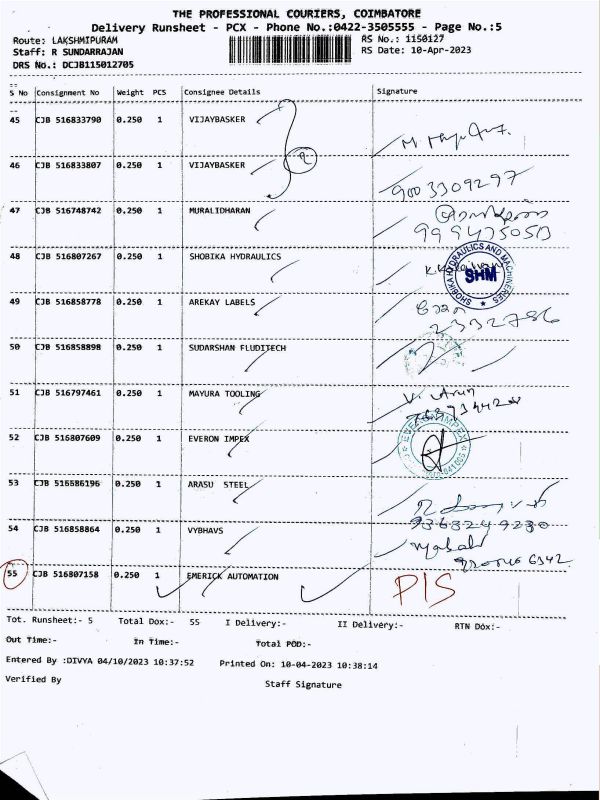 THE PROFESSIONAL COURIERS, COIMBATORE
Delivery Runsheet - PCX - Phone No.:0422-3505555 - Page No.:5
Route: LAKSHMIPURAM RS No.: 1150127
Staff: R SUNDARRAJAN RS Date: 10-Apr-2023
DRS No.: DCJB115012705
S No Consignment No Weight PCS Consignee Details Signature
45 CJB 516833790 0.250 1 VIJAYBASKER
46 CJB 516833807 0.250 1 VIJAYBASKER
2
9003309297
47 CJB 516748742 0.250 1 MURALIDHARAN
48 CJB 516807267 0.250 1 SHOBIKA HYDRAULICS
SHOBIKA HYDRAULICS AND MACHINERIES
SHM
49 CJB 516858778 0.250 1 AREKAY LABELS
2332786
50 CJB 516858898 0.250 1 SUDARSHAN FLUDITECH
51 CJB 516797461 0.250 1 MAYURA TOOLING
V. Arun
52 CJB 516807609 0.250 1 EVERON IMPEX
53 CJB 516586196 0.250 1 ARASU STEEL
9363249230
54 CJB 516858864 0.250 1 VYBHAVS
55 CJB 516807158 0.250 1 EMERICK AUTOMATION P/S
Tot. Runsheet:- 5 Total Dox:- 55 I Delivery:- II Delivery:- RTN Dox:-
Out Time:- In Time:- Total POD:-
Entered By :DIVYA 04/10/2023 10:37:52 Printed On: 10-04-2023 10:38:14
Verified By Staff Signature